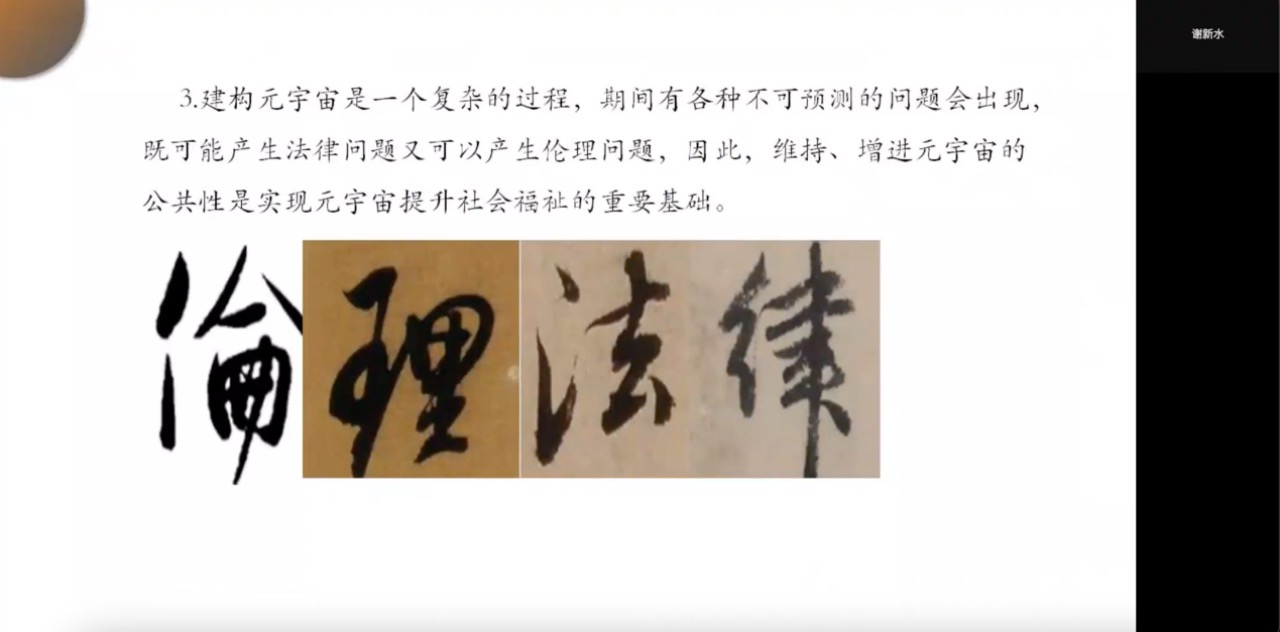 3.建构元宇宙是一个复杂的过程，期间有各种不可预测的问题会出现，
既可能产生法律问题又可以产生伦理问题，因此，维持、增进元宇宙的
公共性是实现元宇宙提升社会福祉的重要基础。
倫理法律
谢新水